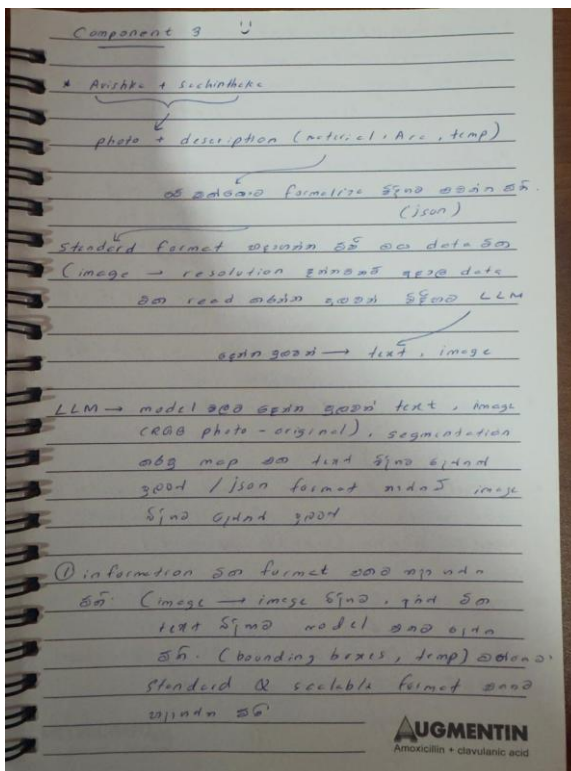 Component 3
* Avishka + Sachinthaka
photo + description (material, Arc, temp)
formalize විදිහට
(json)
Standard format හදාගන්න ඕනි data ටික
(image → resolution data
read කරන්න පුලුවන් විදිහට LLM
දෙන්න පුලුවන් → text, image
LLM → model එකට දෙන්න පුලුවන් text, image
(RGB photo - original), segmentation
කරපු map එක text විදිහට දෙන්න
පුලුවන් / json format image
විදිහට දෙන්න පුලුවන්
① information ටික format එකට හදා ගන්න
ඕනි. (image → image විදිහට, ටික
text විදිහට model එකට දෙන්න
ඕනි. (bounding boxes, temp)
Standard & scalable format එකක
හදාගන්න ඕනි
AUGMENTIN
Amoxicillin + clavulanic acid